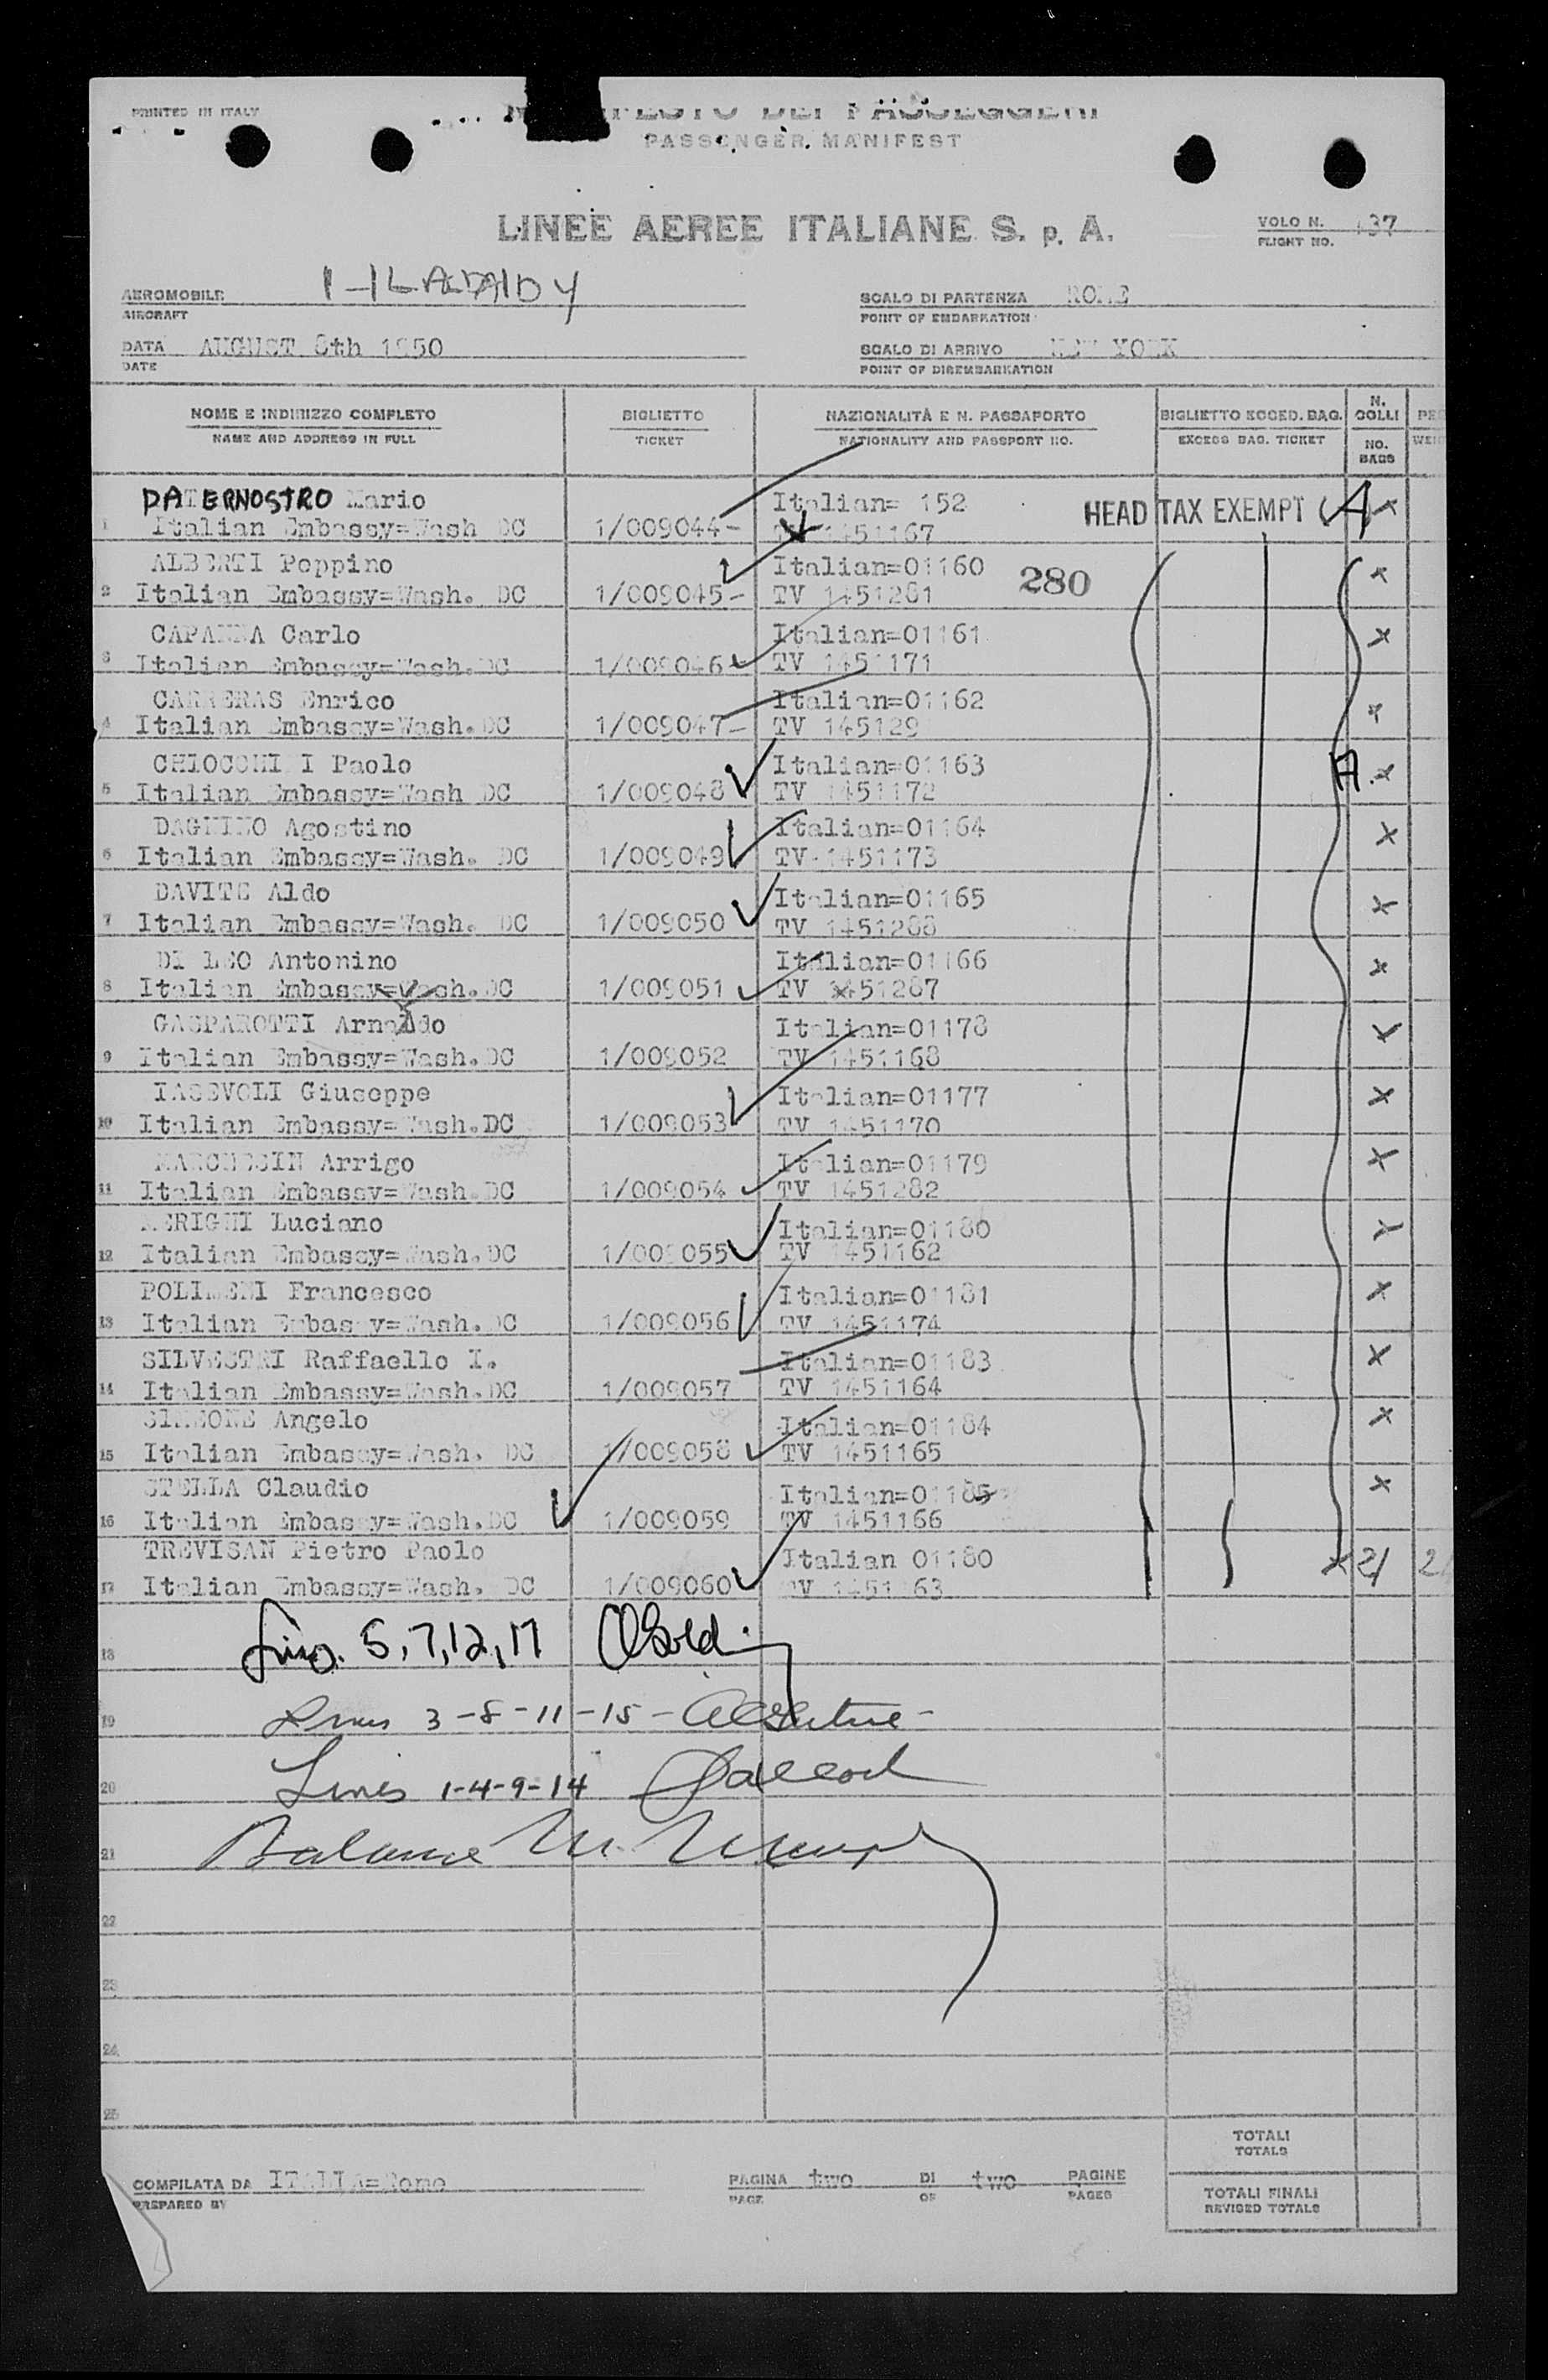 PRINTED IN ITALY
PASSENGER MANIFEST
LINEE AEREE ITALIANE S. p. A.
VOLO N. 137
FLIGHT NO.
AEROMOBILE
AIRCRAFT
SCALO DI PARTENZA ROME
POINT OF EMBARKATION
DATA AUGUST 8th 1950
DATE
SCALO DI ARRIVO NEW YORK
POINT OF DISEMBARKATION
NOME E INDIRIZZO COMPLETO BIGLIETTO NAZIONALITÀ E N. PASSAPORTO BIGLIETTO ECCED. BAG. N. COLLI
NAME AND ADDRESS IN FULL TICKET NATIONALITY AND PASSPORT NO. EXCESS BAG. TICKET NO. BAGS
PATERNOSTRO Mario Italian= 152 HEAD TAX EXEMPT (A) x
1 Italian Embassy=Wash DC 1/009044- TV 1451167
ALBERTI Peppino Italian=01160 280 x
2 Italian Embassy=Wash. DC 1/009045- TV 1451281
CAPANNA Carlo Italian=01161 x
3 Italian Embassy=Wash.DC 1/009046- TV 1451171
CARRERAS Enrico Italian=01162 x
4 Italian Embassy=Wash.DC 1/009047- TV 145129
CHIOCCHI I Paolo Italian=01163 A. x
5 Italian Embassy=Wash DC 1/009048 TV 1451172
DAGNINO Agostino Italian=01164 x
6 Italian Embassy=Wash. DC 1/009049 TV 1451173
DAVITE Aldo Italian=01165 x
7 Italian Embassy=Wash. DC 1/009050 TV 1451288
DI LEO Antonino Italian=01166 x
8 Italian Embassy=Wash.DC 1/009051 TV 1451287
GASPAROTTI Arnaldo Italian=01178 x
9 Italian Embassy=Wash.DC 1/009052 TV 1451168
IASEVOLI Giuseppe Italian=01177 x
10 Italian Embassy=Wash.DC 1/009053 TV 1451170
MARCHESIN Arrigo Italian=01179 x
11 Italian Embassy=Wash.DC 1/009054 TV 1451282
MERIGHI Luciano Italian=01180 x
12 Italian Embassy=Wash.DC 1/009055 TV 1451162
POLIMENI Francesco Italian=01181 x
13 Italian Embassy=Wash.DC 1/009056 TV 1451174
SILVESTRI Raffaello I. Italian=01183 x
14 Italian Embassy=Wash.DC 1/009057 TV 1451164
SIMEONE Angelo Italian=01184 x
15 Italian Embassy=Wash. DC 1/009058 TV 1451165
STELLA Claudio Italian=01185 x
16 Italian Embassy=Wash.DC 1/009059 TV 1451166
TREVISAN Pietro Paolo Italian 01180 x 21
17 Italian Embassy=Wash. DC 1/009060 TV 1451163
18 5, 7, 12, 17
19 Lines 3-8-11-15-
20 Lines 1-4-9-14
21 Balance
22
23
24
25
TOTALI
TOTALS
COMPILATA DA ITALIA=Rome PAGINA two DI two PAGINE
PREPARED BY PAGE OF PAGES
TOTALI FINALI
REVISED TOTALS